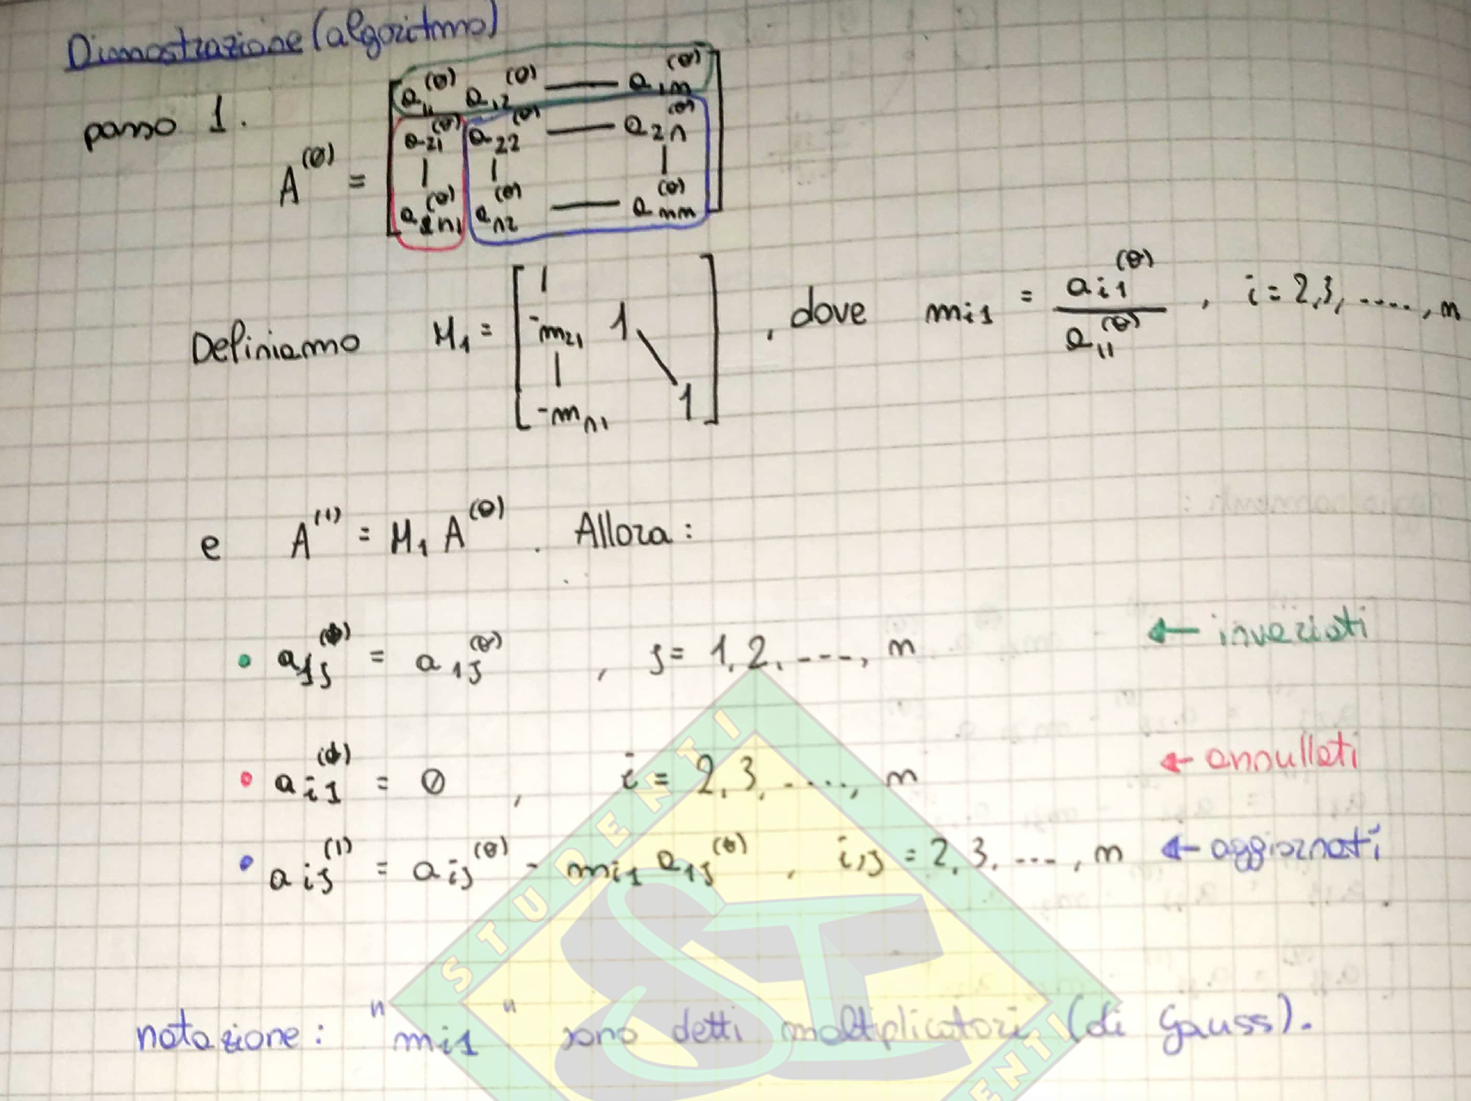 Dimostrazione (algoritmo)
passo 1.
A^(0) = [ a_11^(0) a_12^(0) — a_1n^(0)
a_21^(0) a_22^(0) — a_2n^(0)
| | |
a_n1^(0) a_n2^(0) — a_nn^(0) ]
Definiamo M_1 = [ 1
-m_21 1
| \
-m_n1 1 ] , dove m_i1 = a_i1^(0) / a_11^(0) , i = 2,3, ....., n
e A^(1) = M_1 A^(0) . Allora :
• a_1j^(1) = a_1j^(0) , j = 1, 2, ---, n ← invariati
• a_i1^(1) = 0 , i = 2, 3, ...., n ← annullati
• a_ij^(1) = a_ij^(0) - m_i1 a_1j^(0) , i,j = 2, 3, ---, n ← aggiornati
notazione : "m_i1" sono detti moltiplicatori (di Gauss).
STUDENTI
ENTI